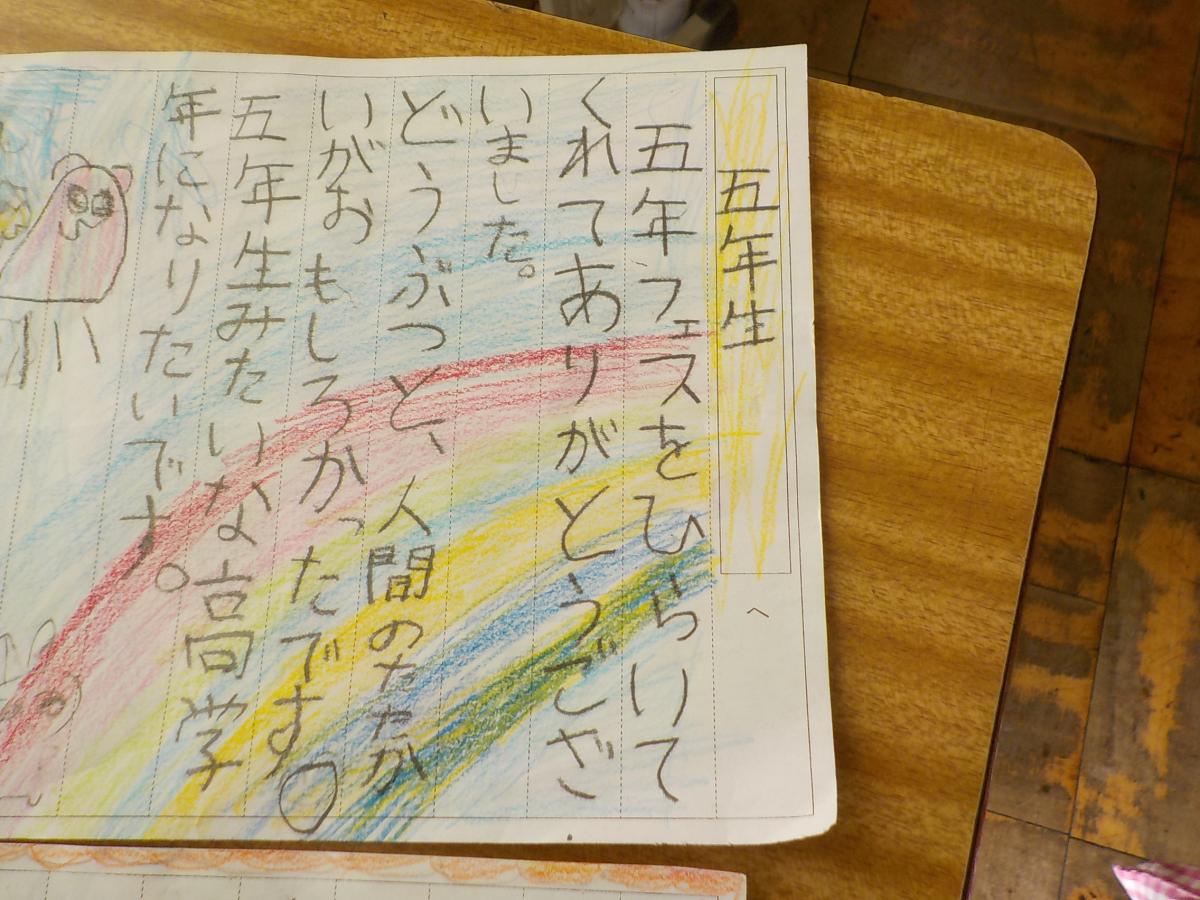 五年生
五年フェスをひらいて
くれてありがとうござ
いました。
どうぶつと、人間のたたか
いがおもしろかったです。
五年生みたいな高学
年になりたいです。